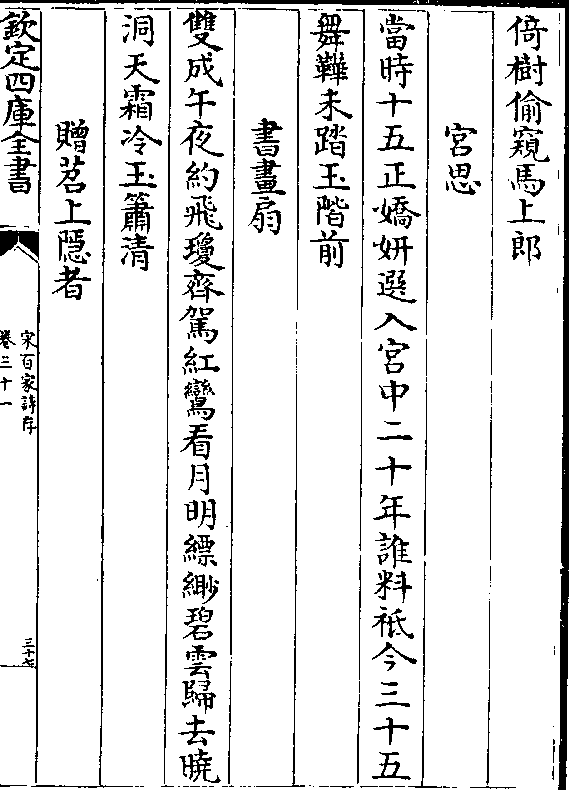 倚樹偷窺馬上郎
宮思
當時十五正嬌妍選入宮中二十年誰料祗今三十五
舞鞾未踏玉階前
書畫扇
雙成午夜約飛瓊齊駕紅鸞看月明縹緲碧雲歸去曉
洞天霜冷玉簫清
贈苕上隱者
欽定四庫全書
宋百家詩存
卷三十一
三十七